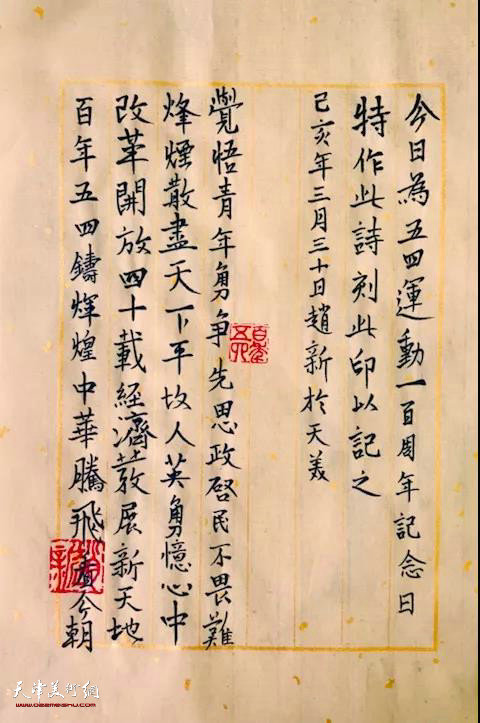 今日為五四運動一百周年記念日
特作此詩刻此印以記之
己亥年三月三十日趙新於天美
百年五四
覺悟青年勇争先思政啓民不畏難
烽煙散盡天下平故人英勇憶心中
改革開放四十載經濟發展新天地
百年五四鑄煇煌中華騰飛看今朝
天津美术网
www.022meishu.com